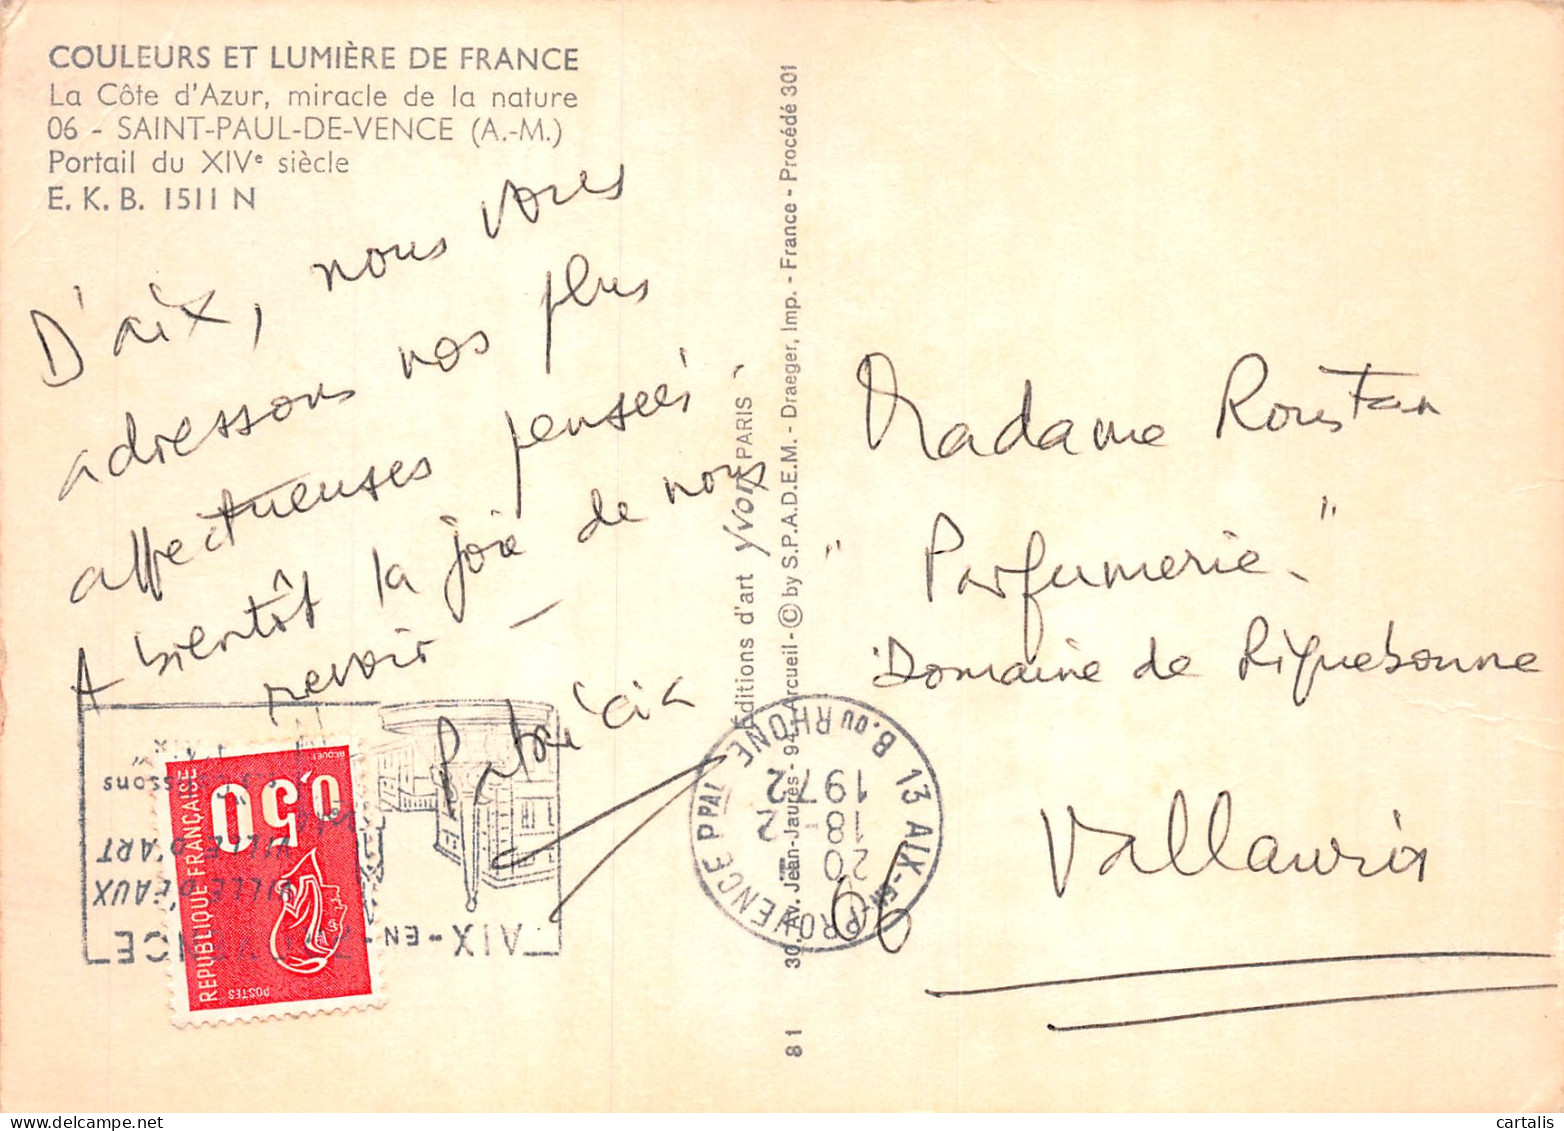 COULEURS ET LUMIÈRE DE FRANCE
La Côte d'Azur, miracle de la nature
06 - SAINT-PAUL-DE-VENCE (A.-M.)
Portail du XIVe siècle
E. K. B. 1511 N
D'aix, nous vous
adressons nos plus
affectueuses pensées
A bientôt la joie de nous
revoir -
Patricia
Éditions d'art yvon PARIS
30, Av. Jean-Jaurès - 94-Arcueil - © by S.P.A.D.E.M. - Draeger, Imp. - France - Procédé 301
81
Madame Roustan
"Parfumerie"
Domaine de Riquebonne
Vallauris
06
13 AIX-EN-PROVENCE PPAL B. DU RHONE
20 H
18 - 2
1972
AIX-EN-PROVENCE
VILLE D'EAUX
VILLE D'ART
0,50
REPUBLIQUE FRANÇAISE
POSTES
BEQUET
www.delcampe.net
cartalis